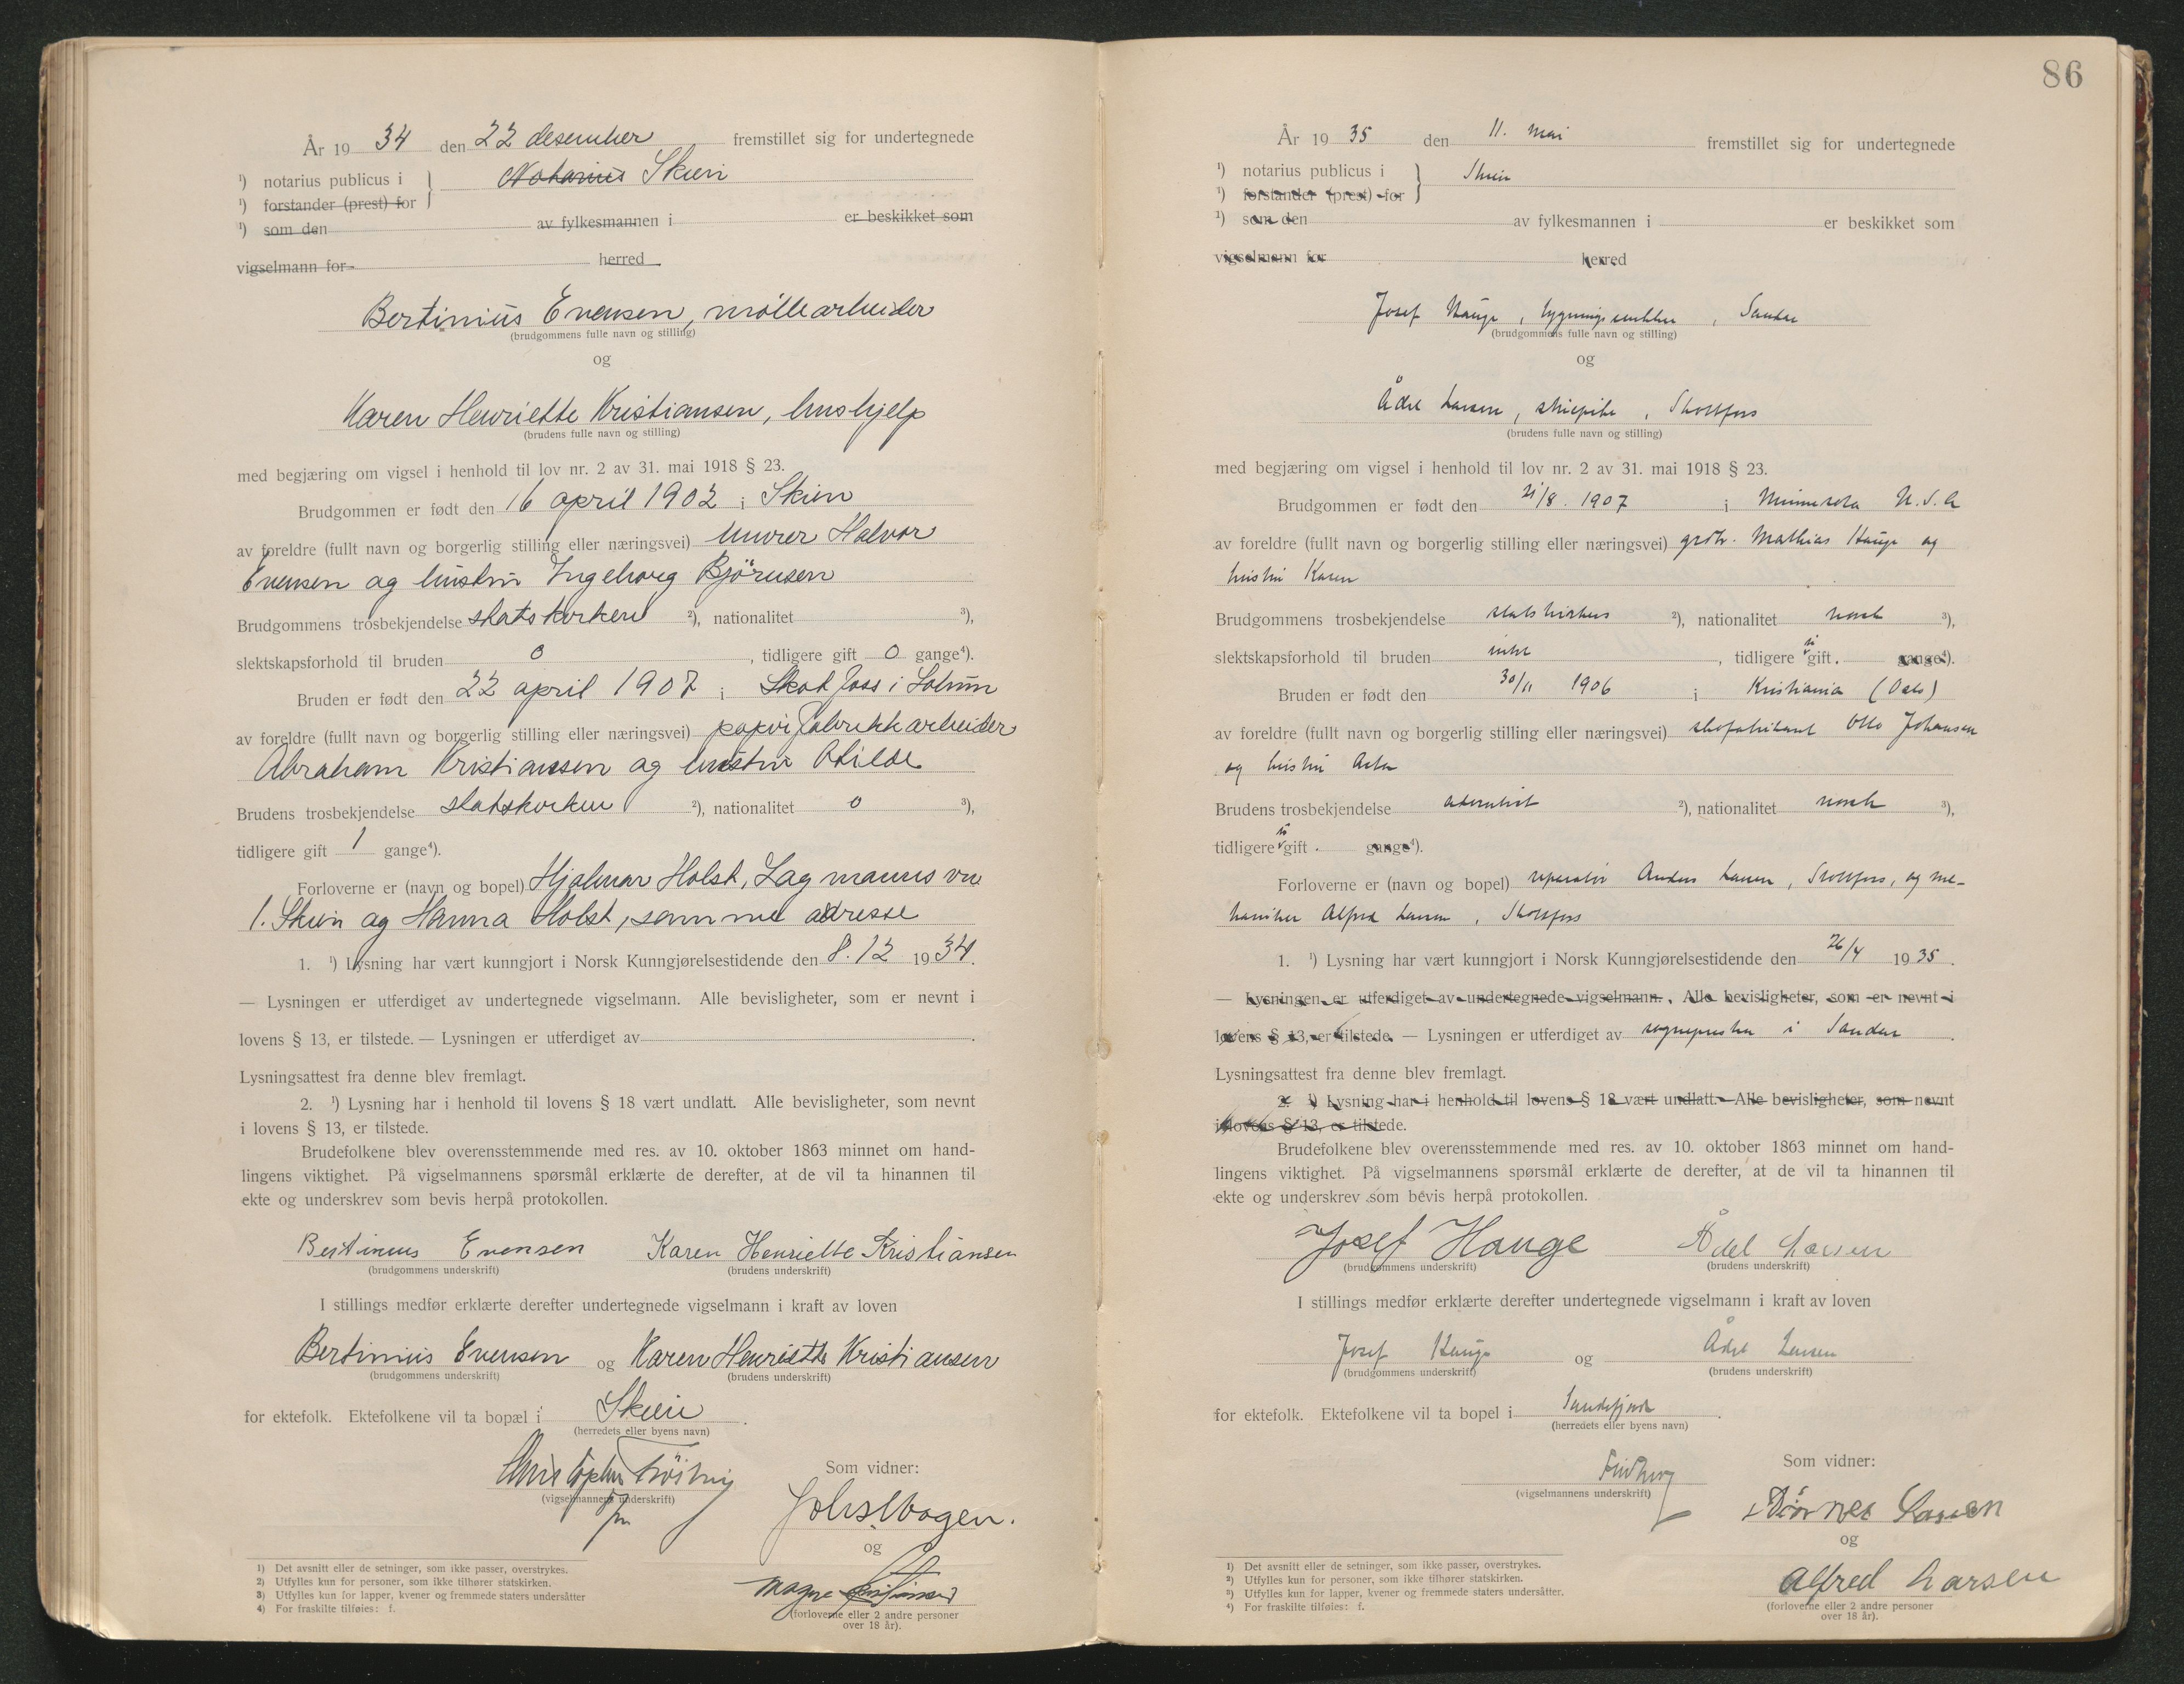 År 19 34 den 22 desember fremstillet sig for undertegnede
¹) notarius publicus i Notarius Skien
¹) forstander (prest) for
¹) som den av fylkesmannen i er beskikket som
vigselmann for herred
Bertinius Evensen, møllearbeider
(brudgommens fulle navn og stilling)
og
Karen Henriette Kristiansen, hushjelp
(brudens fulle navn og stilling)
med begjæring om vigsel i henhold til lov nr. 2 av 31. mai 1918 § 23.
Brudgommen er født den 16 april 1902 i Skien
av foreldre (fullt navn og borgerlig stilling eller næringsvei) murer Halvor
Evensen og hustru Ingeborg Björnsen
Brudgommens trosbekjendelse statskirken ²), nationalitet ³),
slektskapsforhold til bruden 0, tidligere gift 0 gange⁴).
Bruden er født den 22 april 1907 i Skotfoss i Solum
av foreldre (fullt navn og borgerlig stilling eller næringsvei) papirfabrikkarbeider
Abraham Kristiansen og hustru Otilde
Brudens trosbekjendelse statskirken ²), nationalitet 0 ³),
tidligere gift 1 gange⁴).
Forloverne er (navn og bopel) Hjalmar Holst, Lagmanns vn
1. Skien og Hanna Holst, samme adresse
1. ¹) Lysning har vært kunngjort i Norsk Kunngjørelsestidende den 8.12 1934.
— Lysningen er utferdiget av undertegnede vigselmann. Alle bevisligheter, som er nevnt i
lovens § 13, er tilstede. — Lysningen er utferdiget av .
Lysningsattest fra denne blev fremlagt.
2. ¹) Lysning har i henhold til lovens § 18 vært undlatt. Alle bevisligheter, som nevnt
i lovens § 13, er tilstede.
Brudefolkene blev overensstemmende med res. av 10. oktober 1863 minnet om hand-
lingens viktighet. På vigselmannens spørsmål erklærte de derefter, at de vil ta hinannen til
ekte og underskrev som bevis herpå protokollen.
Bertinius Evensen Karen Henriette Kristiansen
(brudgommens underskrift) (brudens underskrift)
I stillings medfør erklærte derefter undertegnede vigselmann i kraft av loven
Bertinius Evensen og Karen Henriette Kristiansen
(brudgommens underskrift) (brudens underskrift)
for ektefolk. Ektefolkene vil ta bopæl i Skien.
(herredets eller byens navn)
Som vidner:
(vigselmannens underskrift)
og
Magne Kristiansen
(forloverne eller 2 andre personer
over 18 år).
1) Det avsnitt eller de setninger, som ikke passer, overstrykes.
2) Utfylles kun for personer, som ikke tilhører statskirken.
3) Utfylles kun for lapper, kvener og fremmede staters undersåtter
4) For fraskilte tilføies: f.
86
År 19 35 den 11. mai fremstillet sig for undertegnede
¹) notarius publicus i Skien
¹) forstander (prest) for
¹) som den av fylkesmannen i er beskikket som
vigselmann for herred
Josef Hauge, bygningssnekker, Sandar
(brudgommens fulle navn og stilling)
og
Ådel Larsen, skiepike, Skotfoss
(brudens fulle navn og stilling)
med begjæring om vigsel i henhold til lov nr. 2 av 31. mai 1918 § 23.
Brudgommen er født den 21/8. 1907 i Minnesota U.S.A
av foreldre (fullt navn og borgerlig stilling eller næringsvei) grdbr. Mathias Hauge og
hustru Karen
Brudgommens trosbekjendelse statskirkens ²), nationalitet norsk ³),
slektskapsforhold til bruden intet, tidligere ei gift. gange⁴).
Bruden er født den 30/11 1906 i Kristiania (Oslo)
av foreldre (fullt navn og borgerlig stilling eller næringsvei) skofabrikant Otto Johansen
og hustru Asta
Brudens trosbekjendelse adventist ²), nationalitet norsk ³),
tidligere ei gift. gange⁴).
Forloverne er (navn og bopel) reparatør Anders Larsen, Skotfoss, og me-
kaniker Alfred Larsen, Skotfoss
1. ¹) Lysning har vært kunngjort i Norsk Kunngjørelsestidende den 26/4 1935.
— Lysningen er utferdiget av undertegnede vigselmann. Alle bevisligheter, som er nevnt i
lovens § 13, er tilstede. — Lysningen er utferdiget av sogneprsten i Sandar.
Lysningsattest fra denne blev fremlagt.
2. ¹) Lysning har i henhold til lovens § 18 vært undlatt. Alle bevisligheter, som nevnt
i lovens § 13, er tilstede.
Brudefolkene blev overensstemmende med res. av 10. oktober 1863 minnet om hand-
lingens viktighet. På vigselmannens spørsmål erklærte de derefter, at de vil ta hinannen til
ekte og underskrev som bevis herpå protokollen.
Josef Hauge Ådel Larsen
(brudgommens underskrift) (brudens underskrift)
I stillings medfør erklærte derefter undertegnede vigselmann i kraft av loven
Josef Hauge og Ådel Larsen
(brudgommens underskrift) (brudens underskrift)
for ektefolk. Ektefolkene vil ta bopel i Sandefjord.
(herredets eller byens navn)
Som vidner:
(vigselmannens underskrift)
Larsen
og
Alfred Larsen
(forloverne eller 2 andre personer
over 18 år).
1) Det avsnitt eller de setninger, som ikke passer, overstrykes.
2) Utfylles kun for personer, som ikke tilhører statskirken.
3) Utfylles kun for lapper, kvener og fremmede staters undersåtter.
4) For fraskilte tilføies: f.